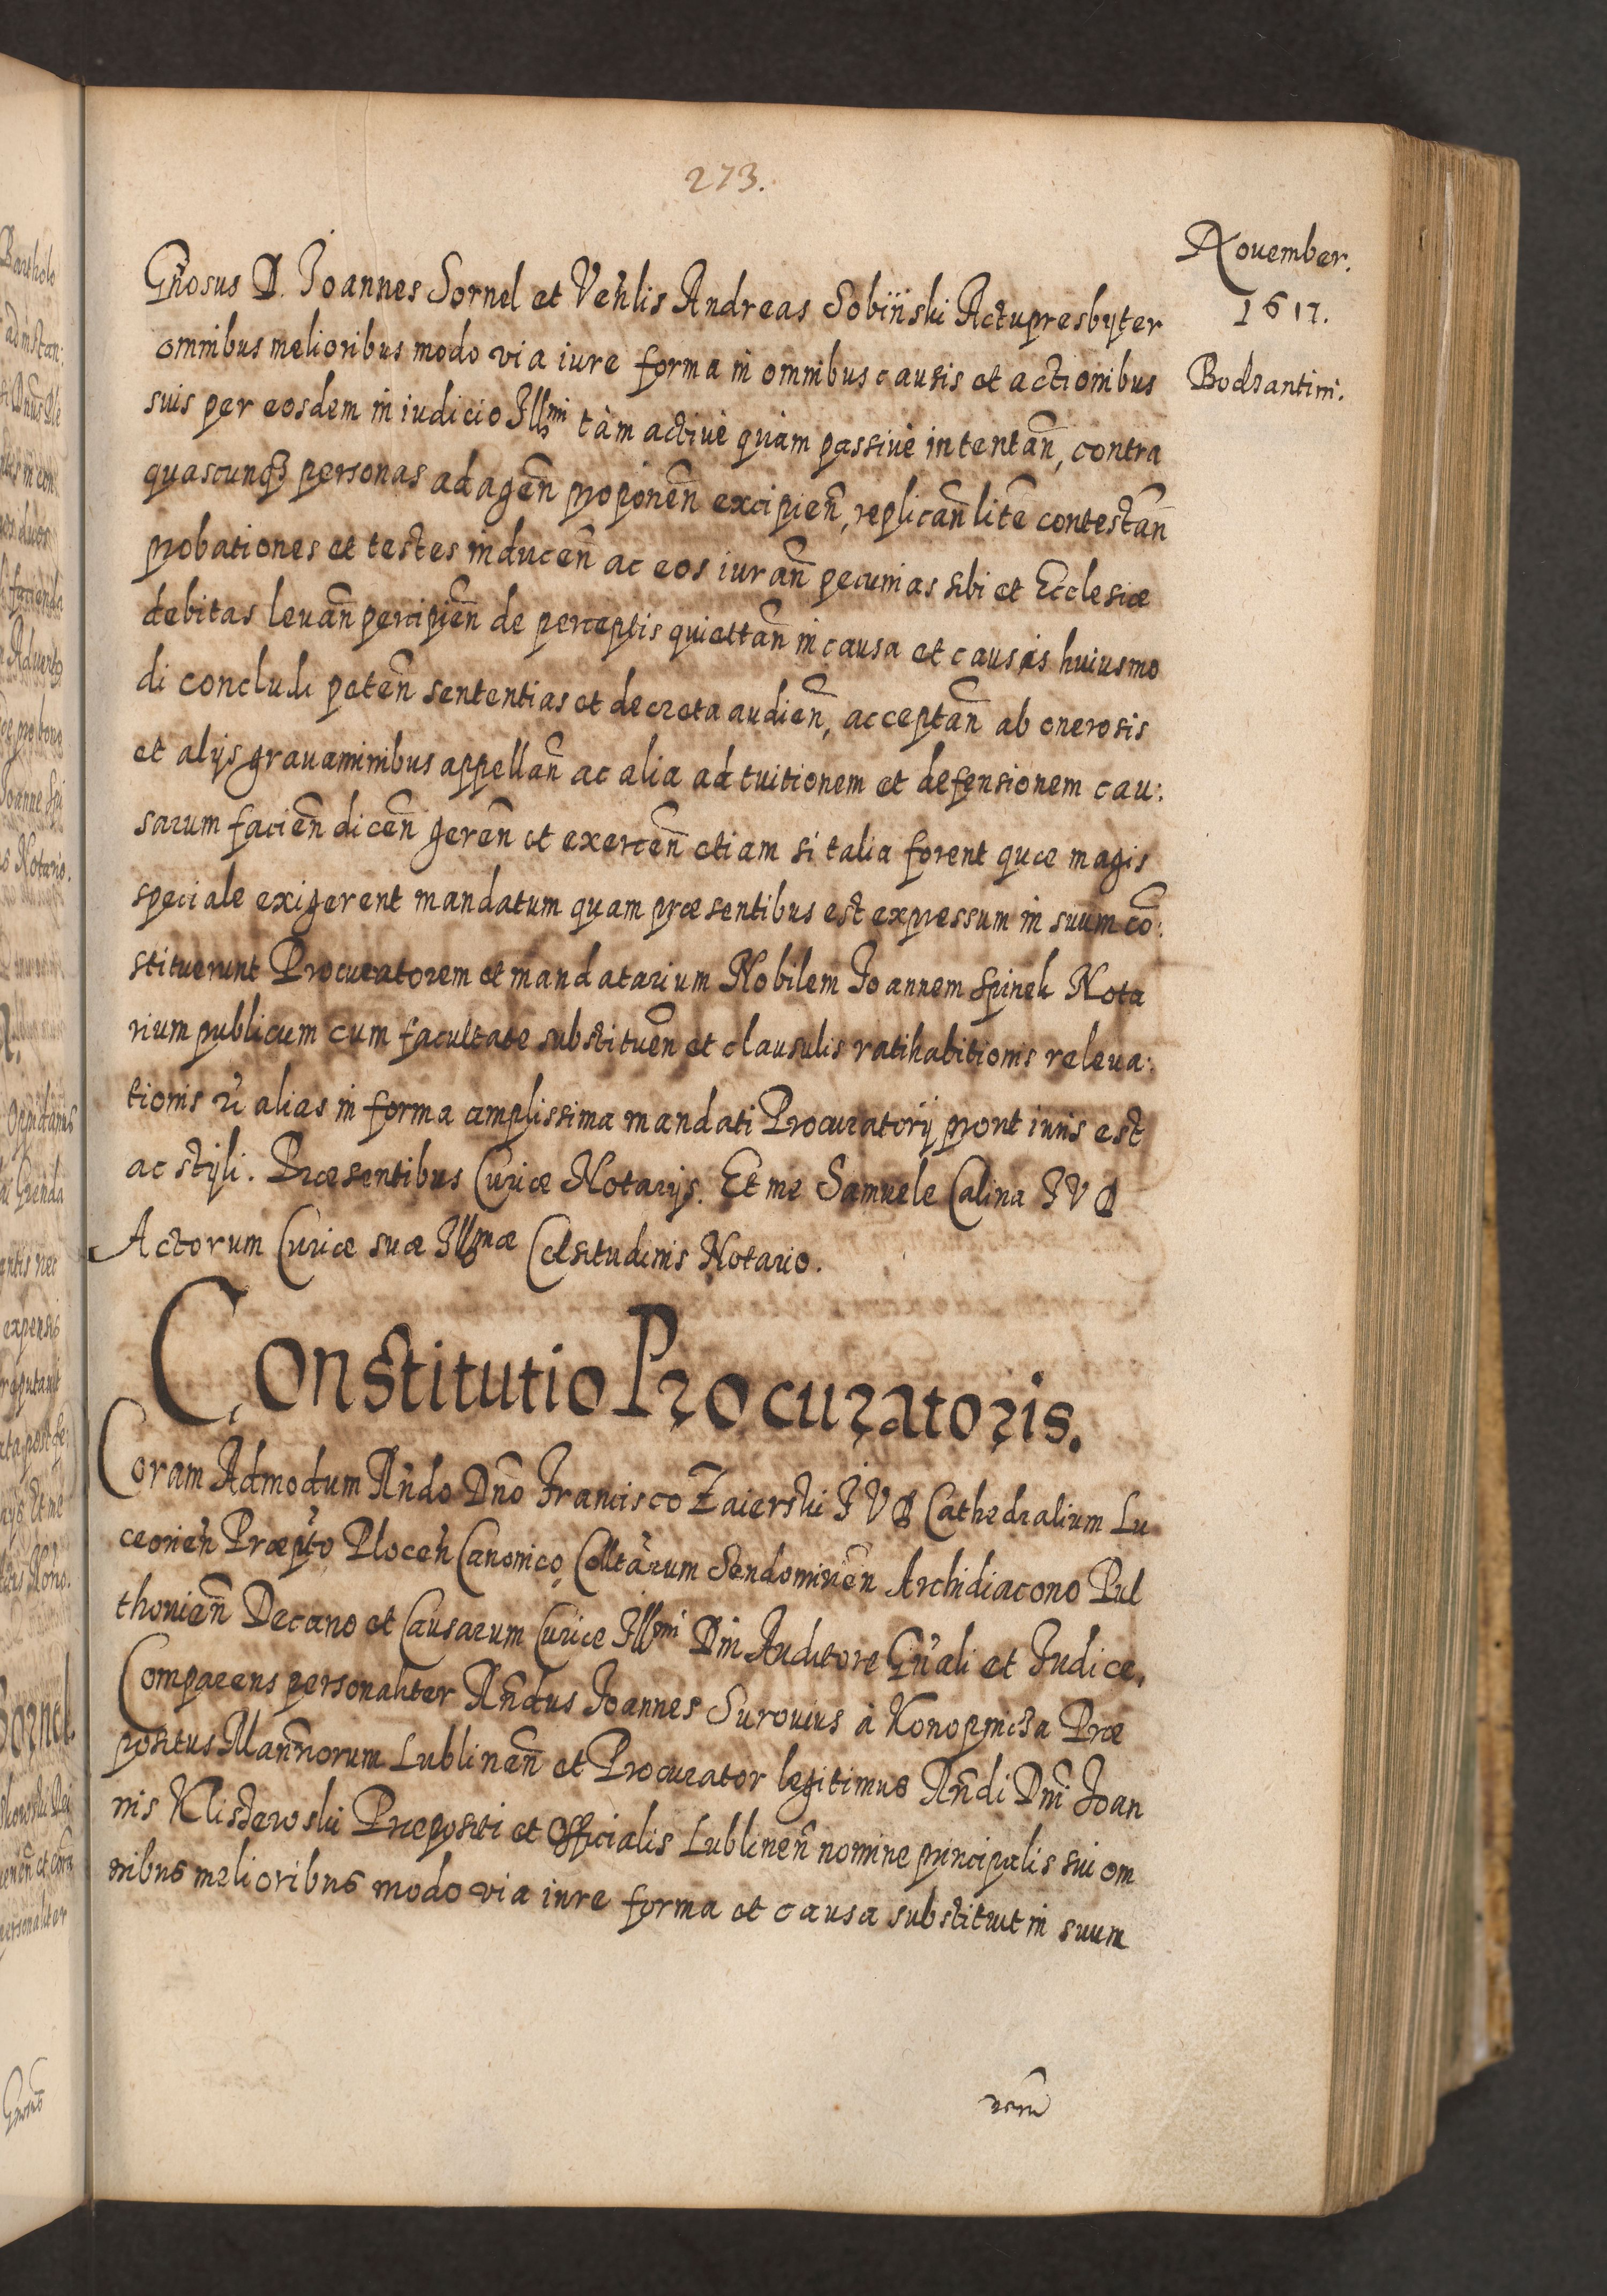 273.
Nouember.
1617.
Bodzantini.
Gnosus D. Ioannes Sornel et Venlis Andreas Sobiński Actupresbyter
omnibus melioribus modo via iure forma in omnibus causis et actionibus
suis per eosdem in iudicio Illmi tàm actiuè quàm passiuè intentañ, contra
quascunqȝ personas ad ageñ proponeñ excipieñ, replicañ litẽ contestañ
probationes et testes induceñ ac eos iurañ pecunias sibi et Ecclesiæ
debitas leuañ percipieñ de perceptis quiettañ in causa et causis huiusmo
di concludi peteñ sententias et decreta audieñ, acceptañ ab onerosis
et alijs grauaminibus appellañ ac alia ad tuitionem et defensionem cau:
sarum facieñ diceñ gereñ et exerceñ etiam si talia forent quæ magis
speciale exigerent mandatum quam præsentibus est expressum in suum cõ:
stituerunt Procuratorem et mandatarium Nobilem Ioannem Spinek Nota
rium publicum cum facultate substitueñ et clausulis ratihabitionis releua:
tionis et alias in forma amplissima mandati Procuratorij prout iuris est
ac styli. Præsentibus Curiæ Notarijs. Et me Samuele Calina I V D
Actorum Curiæ suæ Illmæ Celsitudinis Notario.
Constitutio Procuratoris.
Coram Admodum Rñdo Dño Francisco Zaierski I V D Cathedralium Lu
ceorieñ Præpto Ploceñ Canonico, Colltarum Sendomirieñ Archidiacono Pul
thouieñ Decano et Causarum Curiæ Illmi Dñi Auditore Gñali et Iudice,
Comparens personaliter Rñdus Ioannes Surouius à Konopnicza Præ
positus Mannorum Lublineñ et Procurator legitimus Rñdi Dñi Ioan
nis Klisżewski Præpositi et Officialis Lublineñ nomine principalis sui om
nibus melioribus modo via iure forma et causa substituit in suum